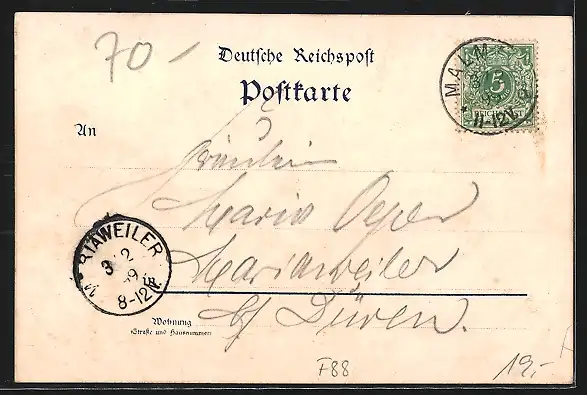 70 -
Deutsche Reichspost
Postkarte
MALM
5
11-12V.
An
Fräulein
Maria
Mariaweiler
b/ Düren.
RIAWEILER
3 2
9
8-12V.
Wohnung
(Straße und Hausnummer)
F88
19,-